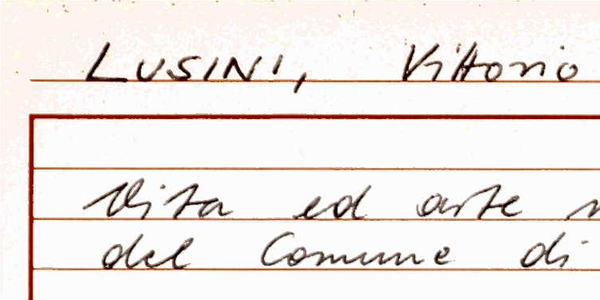 LUSINI, Vittorio
Vita ed arte
del Comune di